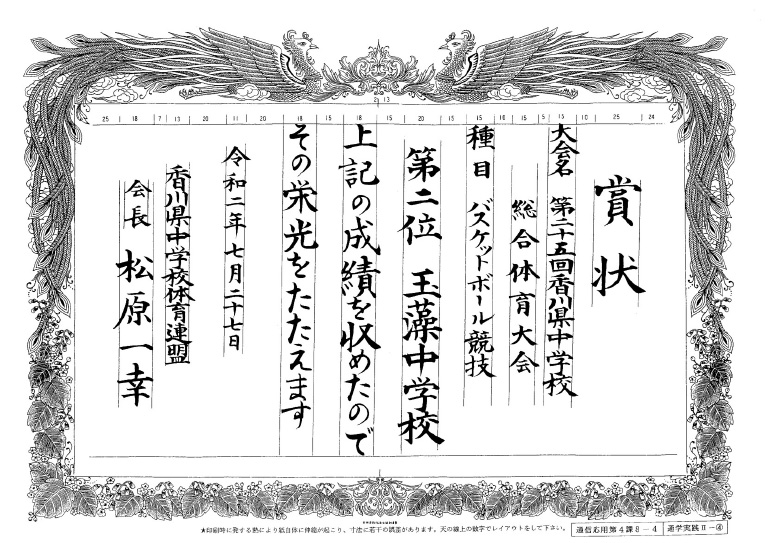 賞状
大会名 第二十五回香川県中学校
総合体育大会
種目 バスケットボール競技
第二位 玉藻中学校
上記の成績を収めたので
その栄光をたたえます
令和二年七月二十七日
香川県中学校体育連盟
会長 松原一幸
2 13
25 18 7 13 20 11 20 18 15 18 15 20 15 15 16 15 5 13 10 25 24
★印刷時に発する熱により紙自体に伸縮が起こり、寸法に若干の誤差があります。天の線上の数字でレイアウトをして下さい。
通信応用第4課8-4 通学実践Ⅱ-④